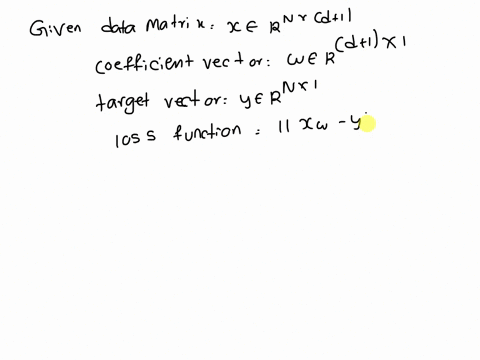 Given data matrix: x ∈ R^{N×(d+1)}
coefficient vector: ω ∈ R^{(d+1)×1}
target vector: y ∈ R^{N×1}
loss function = ||xω - y